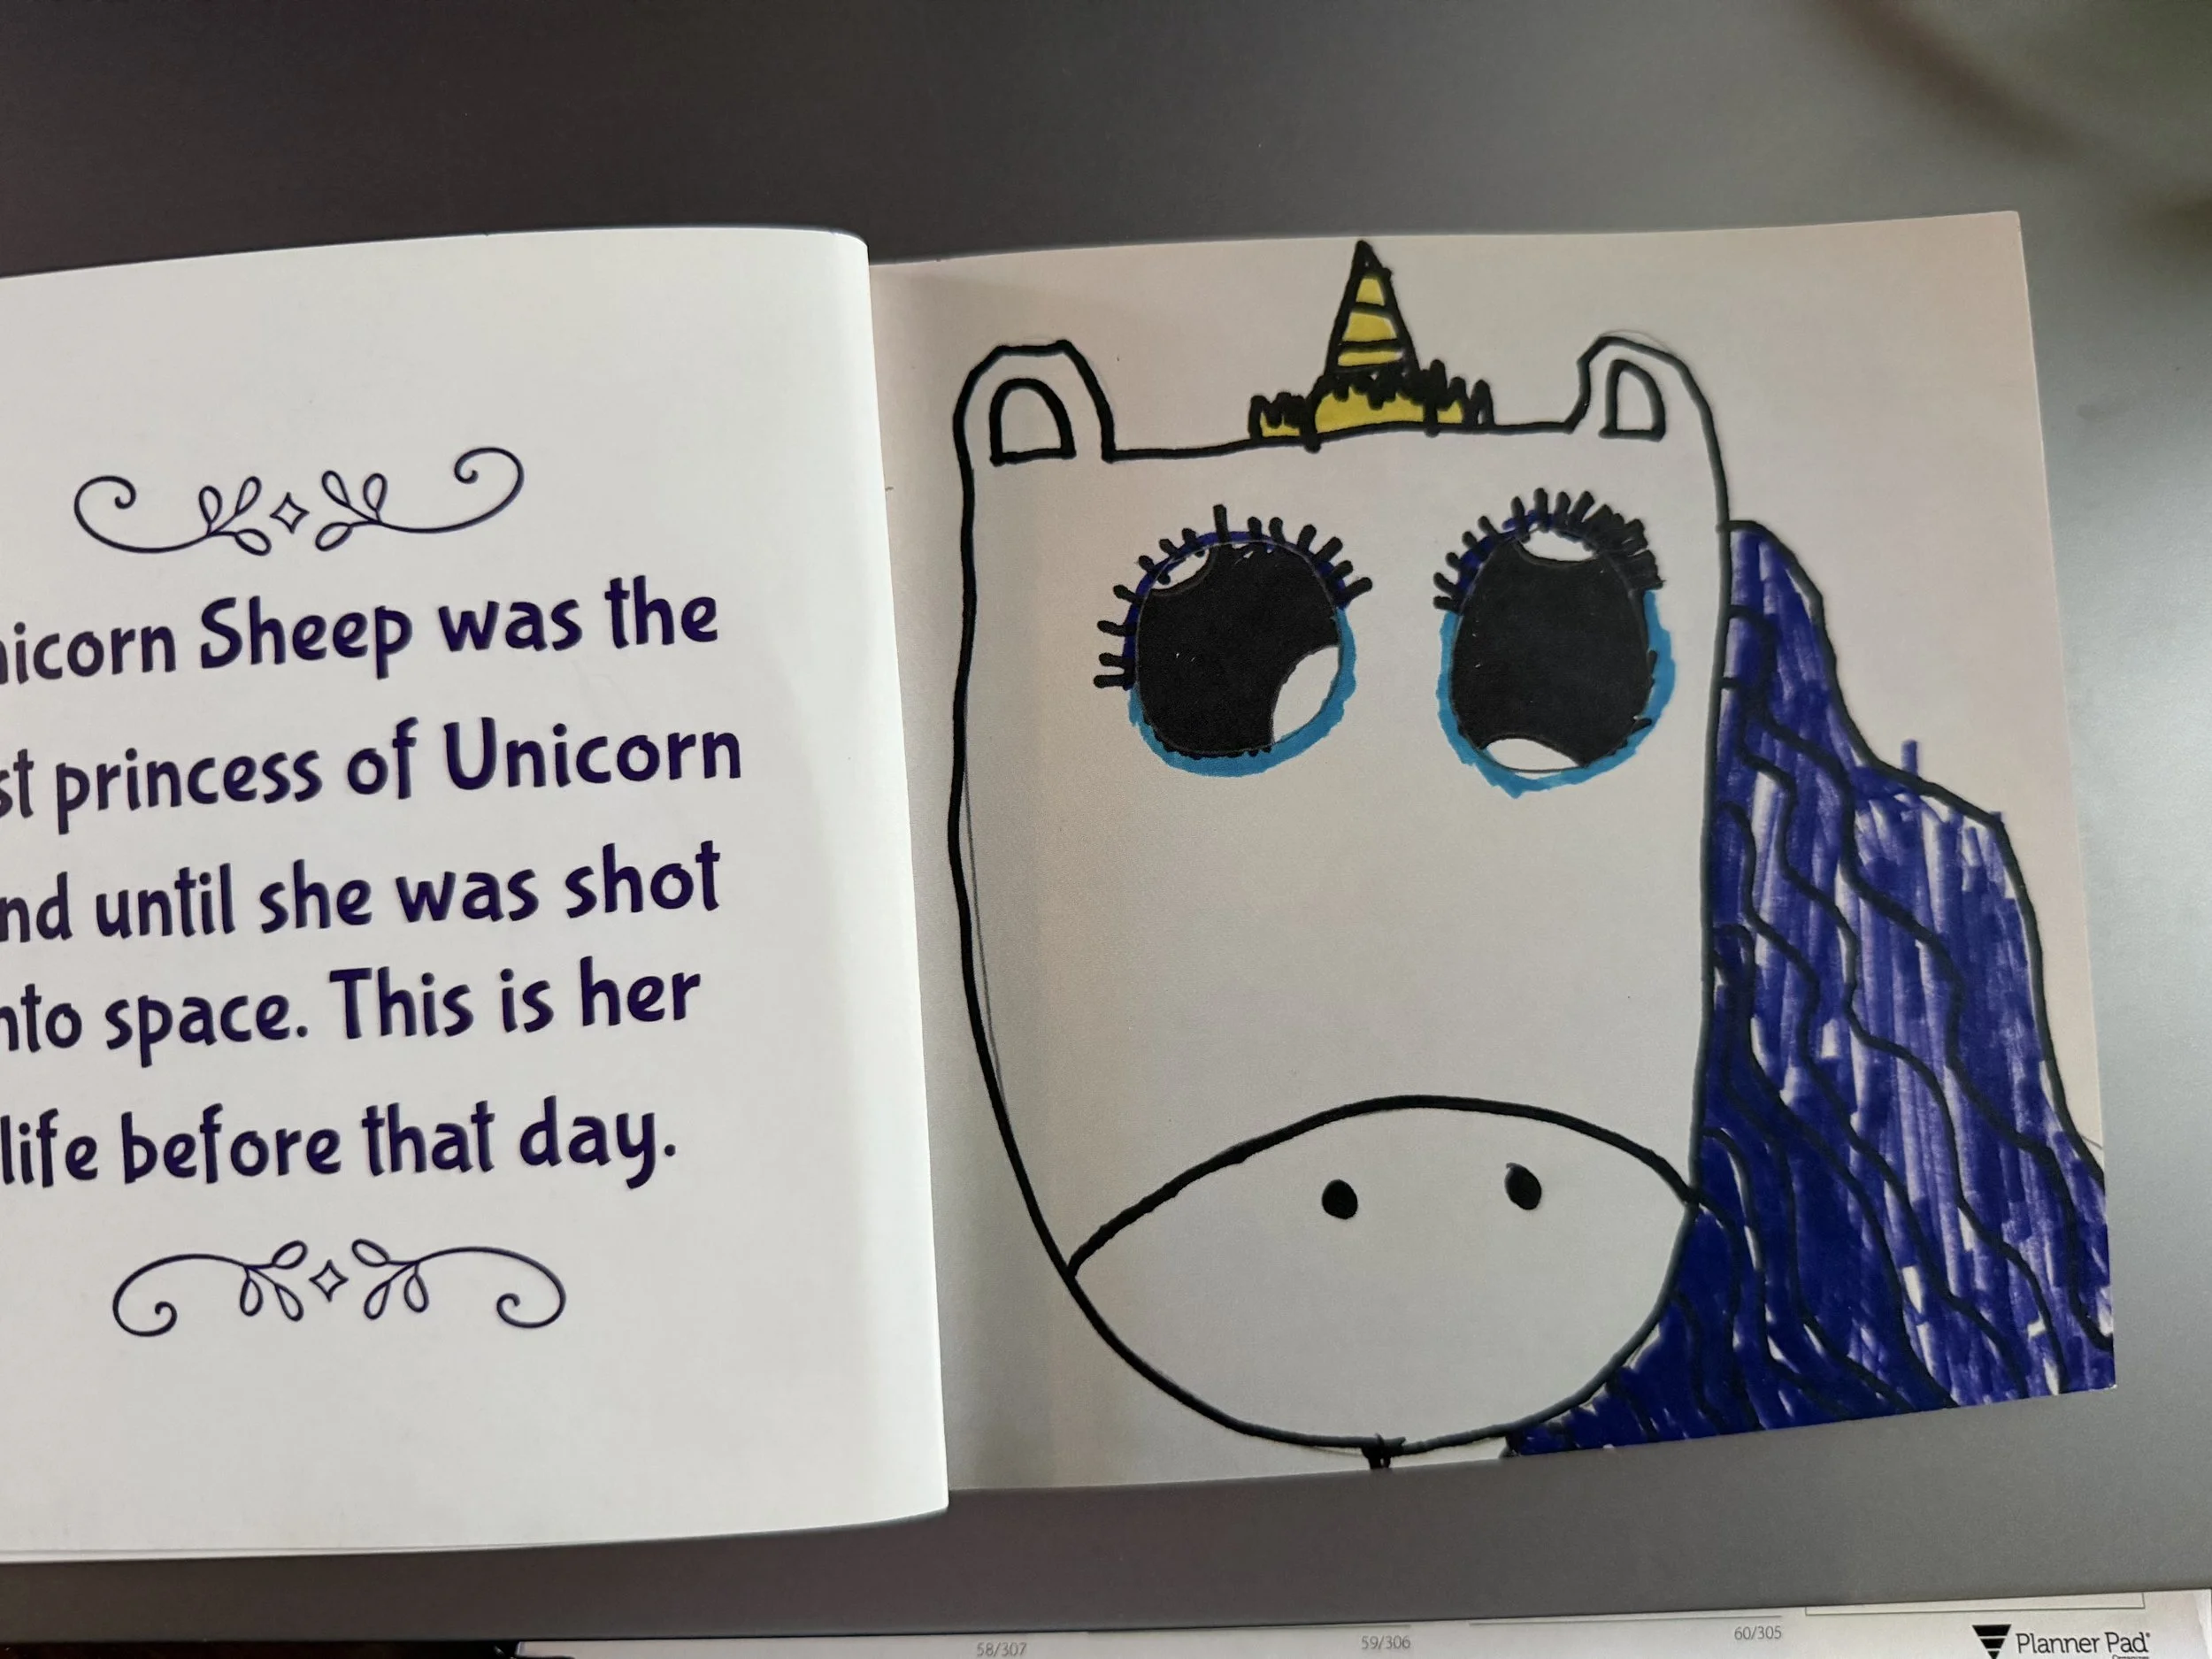 nicorn Sheep was the
st princess of Unicorn
nd until she was shot
nto space. This is her
life before that day.
58/307
59/306
60/305
Planner Pad®